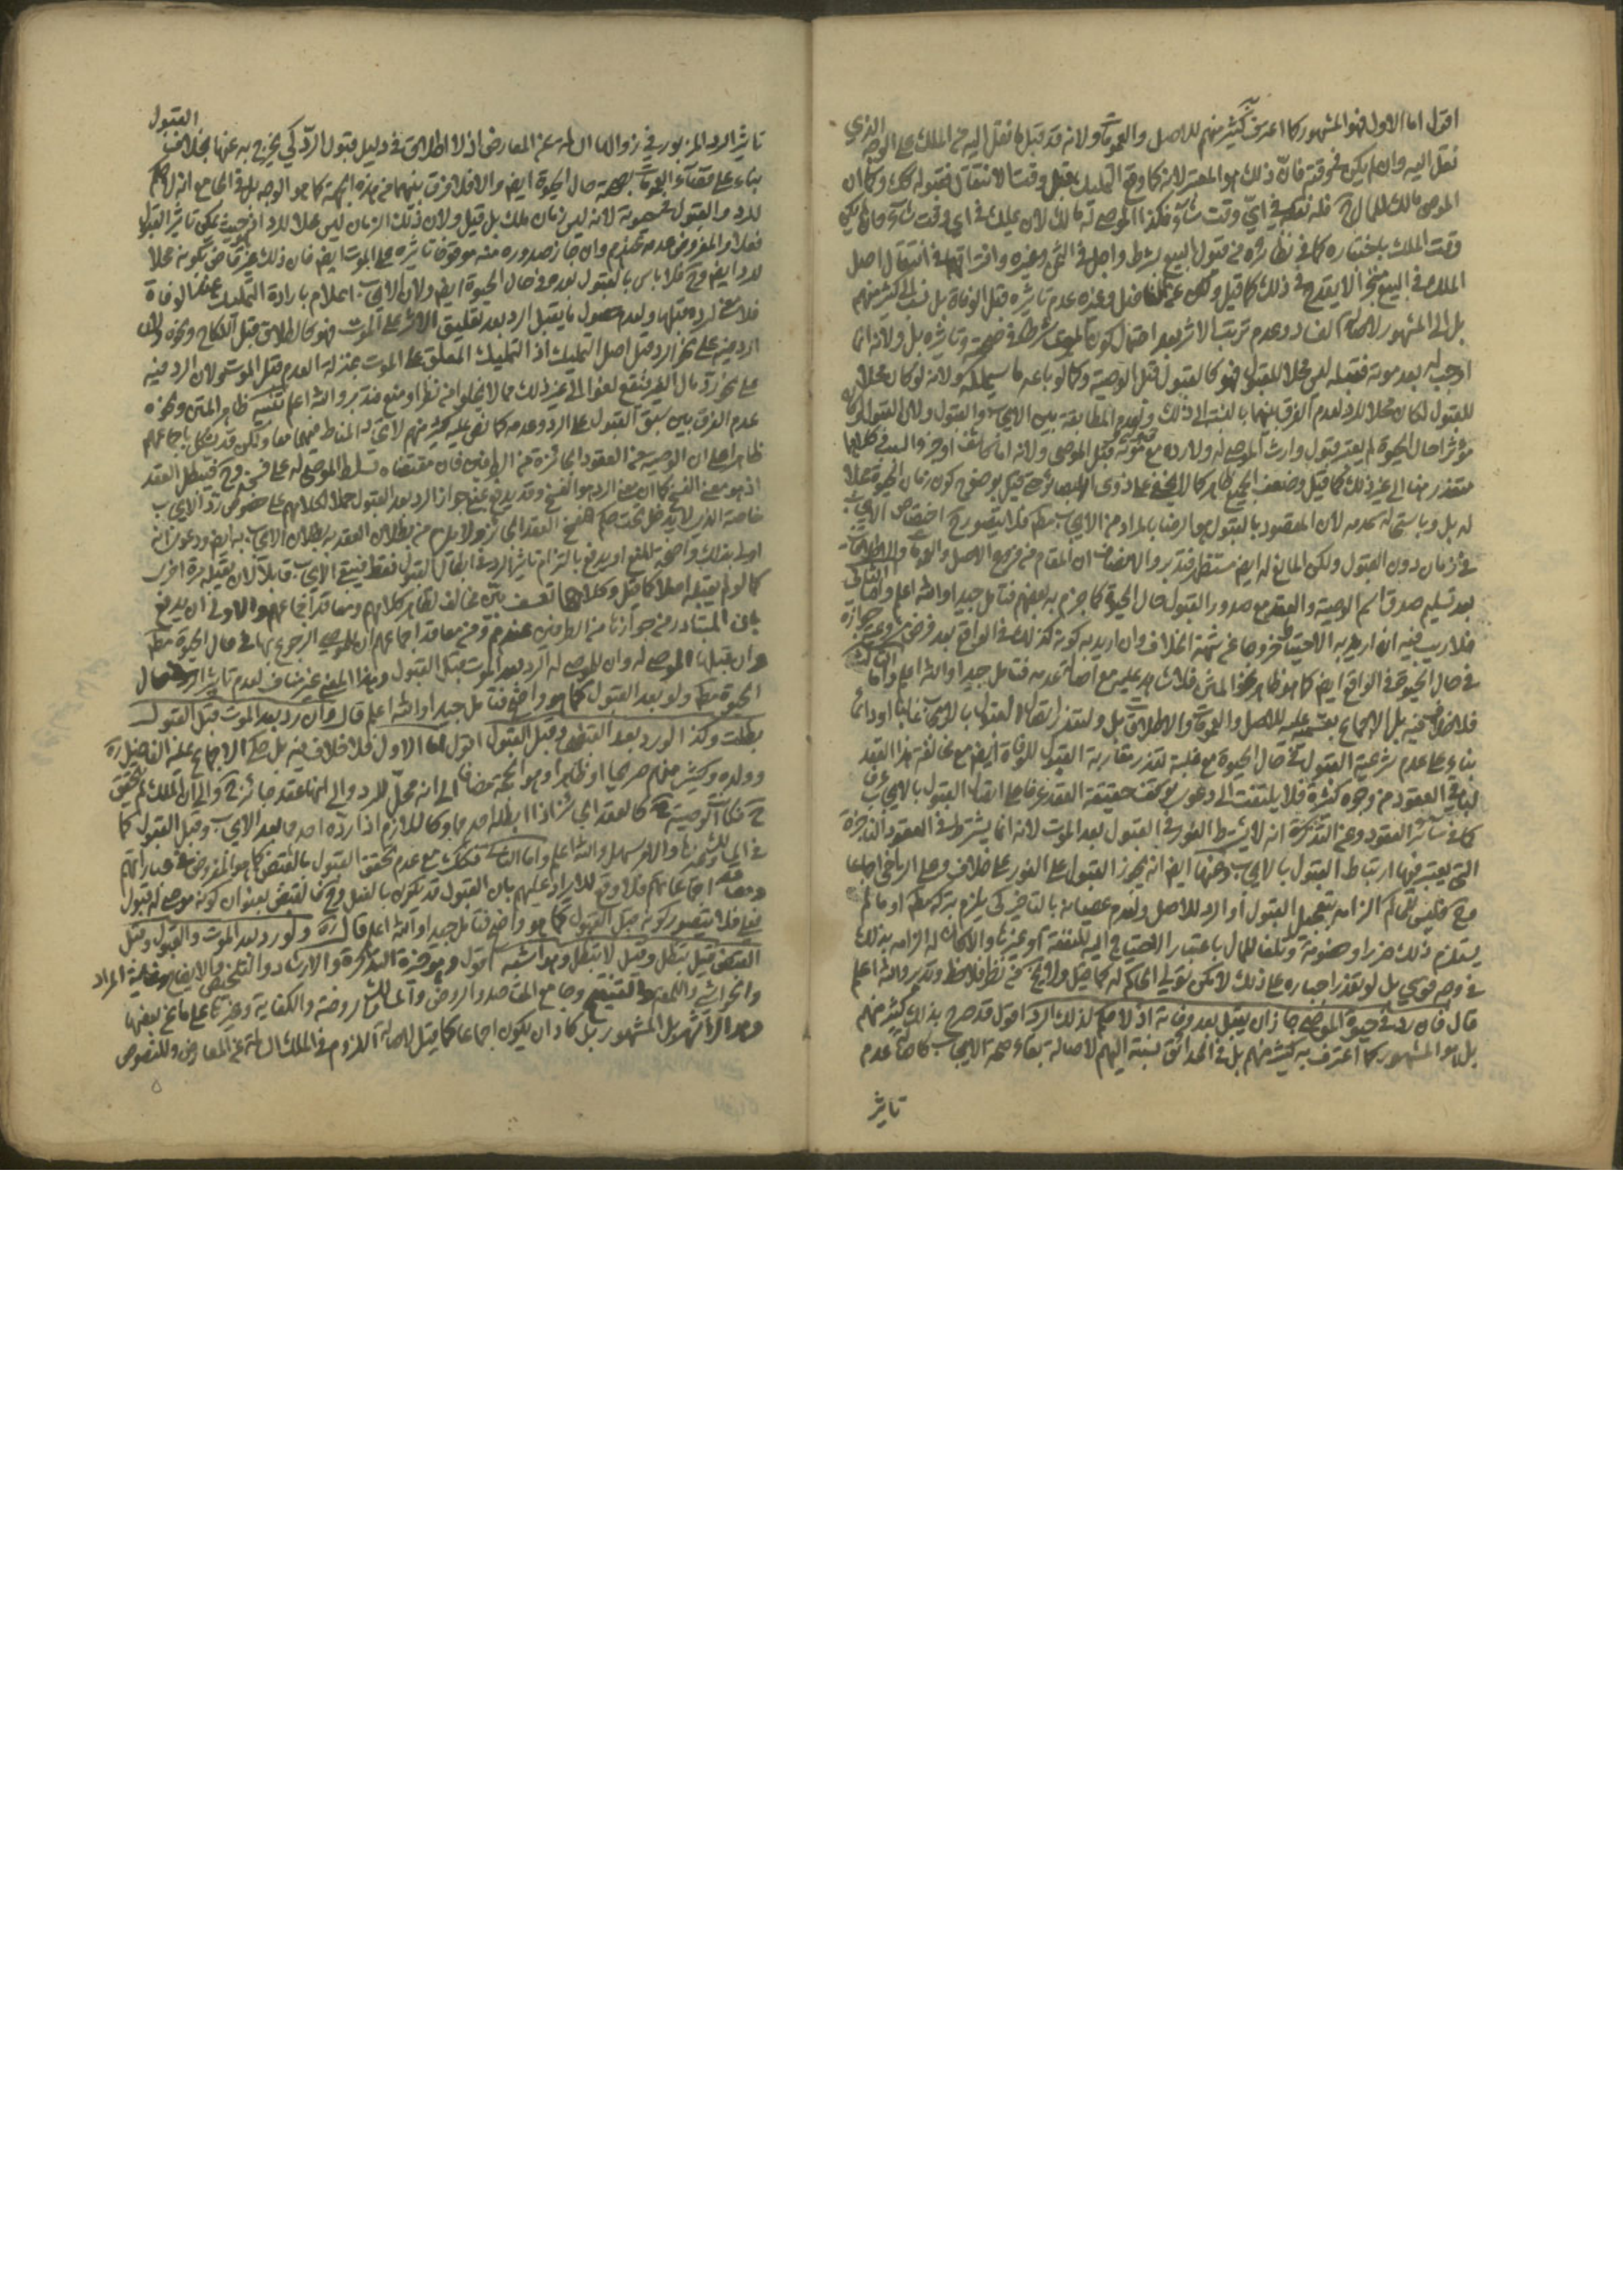 اقول اما الاول فهو المشهور كما اعترف به كثير منهم للاصل والعمومات ولانه قد قبل ما نقل اليه من الملك على الوجه الذي
نقل اليه وان لم يكن في وقته فان ذلك هو المعتبر لانه كما وقع التمليك قبل وقت الانتقال فقبوله كك وكما ان
الموصي مالك للمال فله نقله في اي وقت شاء فكذا الموصى له مالك لان يملك في اي وقت شاء
وقت الملك باختياره كما في نظائره في قبول البيع بشرط واجل في الثمن وغيره وافتراقهما في انتقال اصل
الملك في البيع منجزا لا يقدح في ذلك كما قيل وعن قبل وغيره عدم تاثيره قبل الوفاة بل نسب الى كثير منهم
بل الى المشهور لاصالة الفساد وعدم ترتب الاثر بعد احتمال كون الموت شرطا في صحته وتاثيره بل ولانه انما
اوجب له بعد موته فقبله ليس محلا للقبول فهو كالقبول قبل الوصية وكما لو باعه ما سيملكه ولانه لو كان محلا
للقبول لكان محلا للرد لعدم الفرق بينهما بالنسبة الى ذلك ولعدم المطابقة بين الايجاب والقبول ولان القبول لو كان
مؤثرا حال الحيوة لم يعتبر قبول وارث الموصى له ولا رده مع موته قبل الموصي ولانه اما كاشف او جزء السبب وكلاهما
متعذر هنا الى غير ذلك كما قيل وضعف الجميع ظاهر كما لا يخفى على ذوي البصائر قيل بوضوح كون زمان الحيوة محلا
له بل وباستحالة عدمه لان المقصود بالقبول هو الرضا بالمراد من الايجاب مط فلا يتصور ح اختصاص الايجاب
في زمان دون القبول ولكن المانع له ايض مستظهر فتدبر والانصاف ان المقام من فروع الاصل والعمومات والاطلاقات
بعد تسليم صدق اسم الوصية والعقد مع صدور القبول حال الحيوة كما جزم به بعضهم فتامل جيدا والله اعلم واما الثاني
فلا ريب فيه ان اريد به الاحتياط خروجا عن شبهة الخلاف وان اريد به كونه كذلك في الواقع بعد فرض جوازه
في حال الحيوة في الواقع ايض كما هو ظاهر نحو المتن فلا شاهد عليه مع اصالة عدمه فتامل جيدا والله اعلم واما الثالث
فلا خلاف فيه بل الاجماع بقسميه عليه للاصل والعمومات والاطلاقات بل ولتعذر اتصال القبول بالايجاب غالبا او دائما
بناء على عدم شرعية القبول في حال الحيوة مع غلبة تعذر مقارنة القبول للوفاة ايض مع مخالفة هذا العقد
لباقي العقود من وجوه كثيرة فلا يلتفت الى دعوى توقف حقيقة العقد عرفا على اتصال القبول بالايجاب
كما في سائر العقود وعن التذكرة انه لا يشترط الفور في القبول بعد الموت لانه انما يشترط في العقود الناجزة
التي يعتبر فيها ارتباط القبول بالايجاب وعنها ايض انه يجوز القبول على الفور بلا خلاف وعلى التراخي اجماعا
وح فليس للحاكم الزامه بتعجيل القبول او الرد للاصل ولعدم عصيانه بالتاخير كي يلزم بتركه مط او ما لم
يستلزم ذلك ضررا وخصومة وتلفا للمال باعتبار الاحتياج اليه للنفقة او غيرها والا كان له الزامه بذلك
في وجه قوي بل لو تعذر اجباره على ذلك لامكن تولي الحاكم له كما قيل ولا يخلو من نظر فلاحظ وتدبر والله اعلم
قال فان رد في حيوة الموصي جاز ان يقبل بعد وفاته اذ لا حكم لذلك الرد اقول قد صرح بذلك كثير منهم
بل هو المشهور كما اعترف به كثير منهم بل في الحدائق نسبته اليهم لاصالة بقاء صحة الايجاب كاصالة عدم
تاثير
القبول
تاثير الرد المزبور في زوالها السالمة عن المعارض اذ لا اطلاق في دليل قبول الرد كي يخرج به عنها بخلاف
بناء على اقتضاء العمومات صحته حال الحيوة ايض والا فلا فرق بينهما من هذه الجهة كما هو الوجه بل في الجامع انه لا حكم
للرد والقبول قبل موته لانه ليس زمان ملك بل قيل ولان ذلك الزمان ليس محلا للرد اذ حيث يمكن تاثير القبول
فعلا والمفروض عدمه عندهم وان جاز صدوره منه موقوفا تاثيره على الموت ايض فان ذلك غير قاض بكونه محلا
للرد ايض وح فلا باس بالقبول بعده في حال الحيوة ايض ولان الايجاب اعلام بارادة التمليك عند الوفاة
فلا معنى لرده قبلها ولعدم حصول ما يقبل الرد بعد تعليق الاثر على الموت فهو كالطلاق قبل النكاح ونحوه ولان
الرد مبني على نحو الرد قبل اصل التمليك اذ التمليك المعلق على الموت بمنزلة العدم قبل الموت ولان الرد مبنية
على نحو رد مال الغير فيقع لغوا الى غير ذلك مما لا يخلو من نظر او منع فتدبر والله اعلم تنبيه ظاهر المتن ونحوه
عدم الفرق بين سبق القبول على الرد وعدمه كما نص عليه كثير منهم لاتحاد المناط فيهما معا ولكن قد يشكل باجماعهم
ظاهرا على ان الوصية من العقود الجائزة من الطرفين فان مقتضاه تسلط الموصى له على فسخه وح فيبطل العقد
اذ هو معنى الفسخ كما ان معنى الرد هو الفسخ وقد يدفع بمنع جواز الرد بعد القبول حملا لكلامهم على خصوص رد الايجاب
خاصة الذي لا يدخل تحت حكم الفسخ العقد الجائز ولا يلزم من بطلان العقد به بطلان الايجاب به ايض ودعوى انه
اولى بذلك واضحة المنع او يدفع بالتزام تاثير الرد في ابطال القبول فقط فيبقى الايجاب قابلا لان يقبله مرة اخرى
كما لو لم يقبله اصلا كما قيل وكلاهما تعسف بين مخالف لظاهر كلامهم ومعاقد اجماعهم والاولى ان يدفع
بان المتبادر من جوازها من الطرفين عندهم ومن معاقد اجماعهم ان للموصي الرجوع بها في حال الحيوة مط
وان قبل بها الموصى له وان للموصى له الرد بعد الموت قبل القبول وهذا المعنى غير مناف لعدم تاثير الرد حال
الحيوة مط ولو بعد القبول كما هو واضح فتامل جيدا والله اعلم قال وان رد بعد الموت قبل القبول
بطلت وكذا لو رد بعد القبض وقبل القبول اقول اما الاول فلا خلاف فيه بل حكى الاجماع عليه الفاضل ره
وولده وكثير منهم صريحا او ظاهرا وهو الحجة مضافا الى انه محل للرد والى انها عقد جائز ح والى ان الملك لم يتحقق
ح فكانت الوصية ح كالعقد الجائز اذا ابطله احدهما وكاللازم اذا رده احدهما بعد الايجاب وقبل القبول كما
في المسالك وغيرها والامر سهل والله اعلم واما الثاني فكك مع عدم تحقق القبول بالقبض كما هو المفروض في عباراتهم
ومعاقد اجماعاتهم فلا وقع للايراد عليهم بان القبول قد يكون بالفعل وح فالقبض بعنوان كونه موصى له قبول
فعلي فلا يتصور كونه قبل القبول كما هو واضح فتامل جيدا والله اعلم قال ره ولو رد بعد الموت والقبول وقبل
القبض قيل يبطل وقيل لا تبطل وهو اشبه اقول وهو خيرة التذكرة والارشاد والتلخيص والايضاح وغاية المراد
والحواشي واللمعة والتنقيح وجامع المقاصد والروض والمسالك والروضة والكفاية وغيرها على ما عن بعضها
وهو الاشهر بل المشهور بل كاد ان يكون اجماعا كما قيل لاصالة اللزوم في الملك السالمة عن المعارض وللنصوص